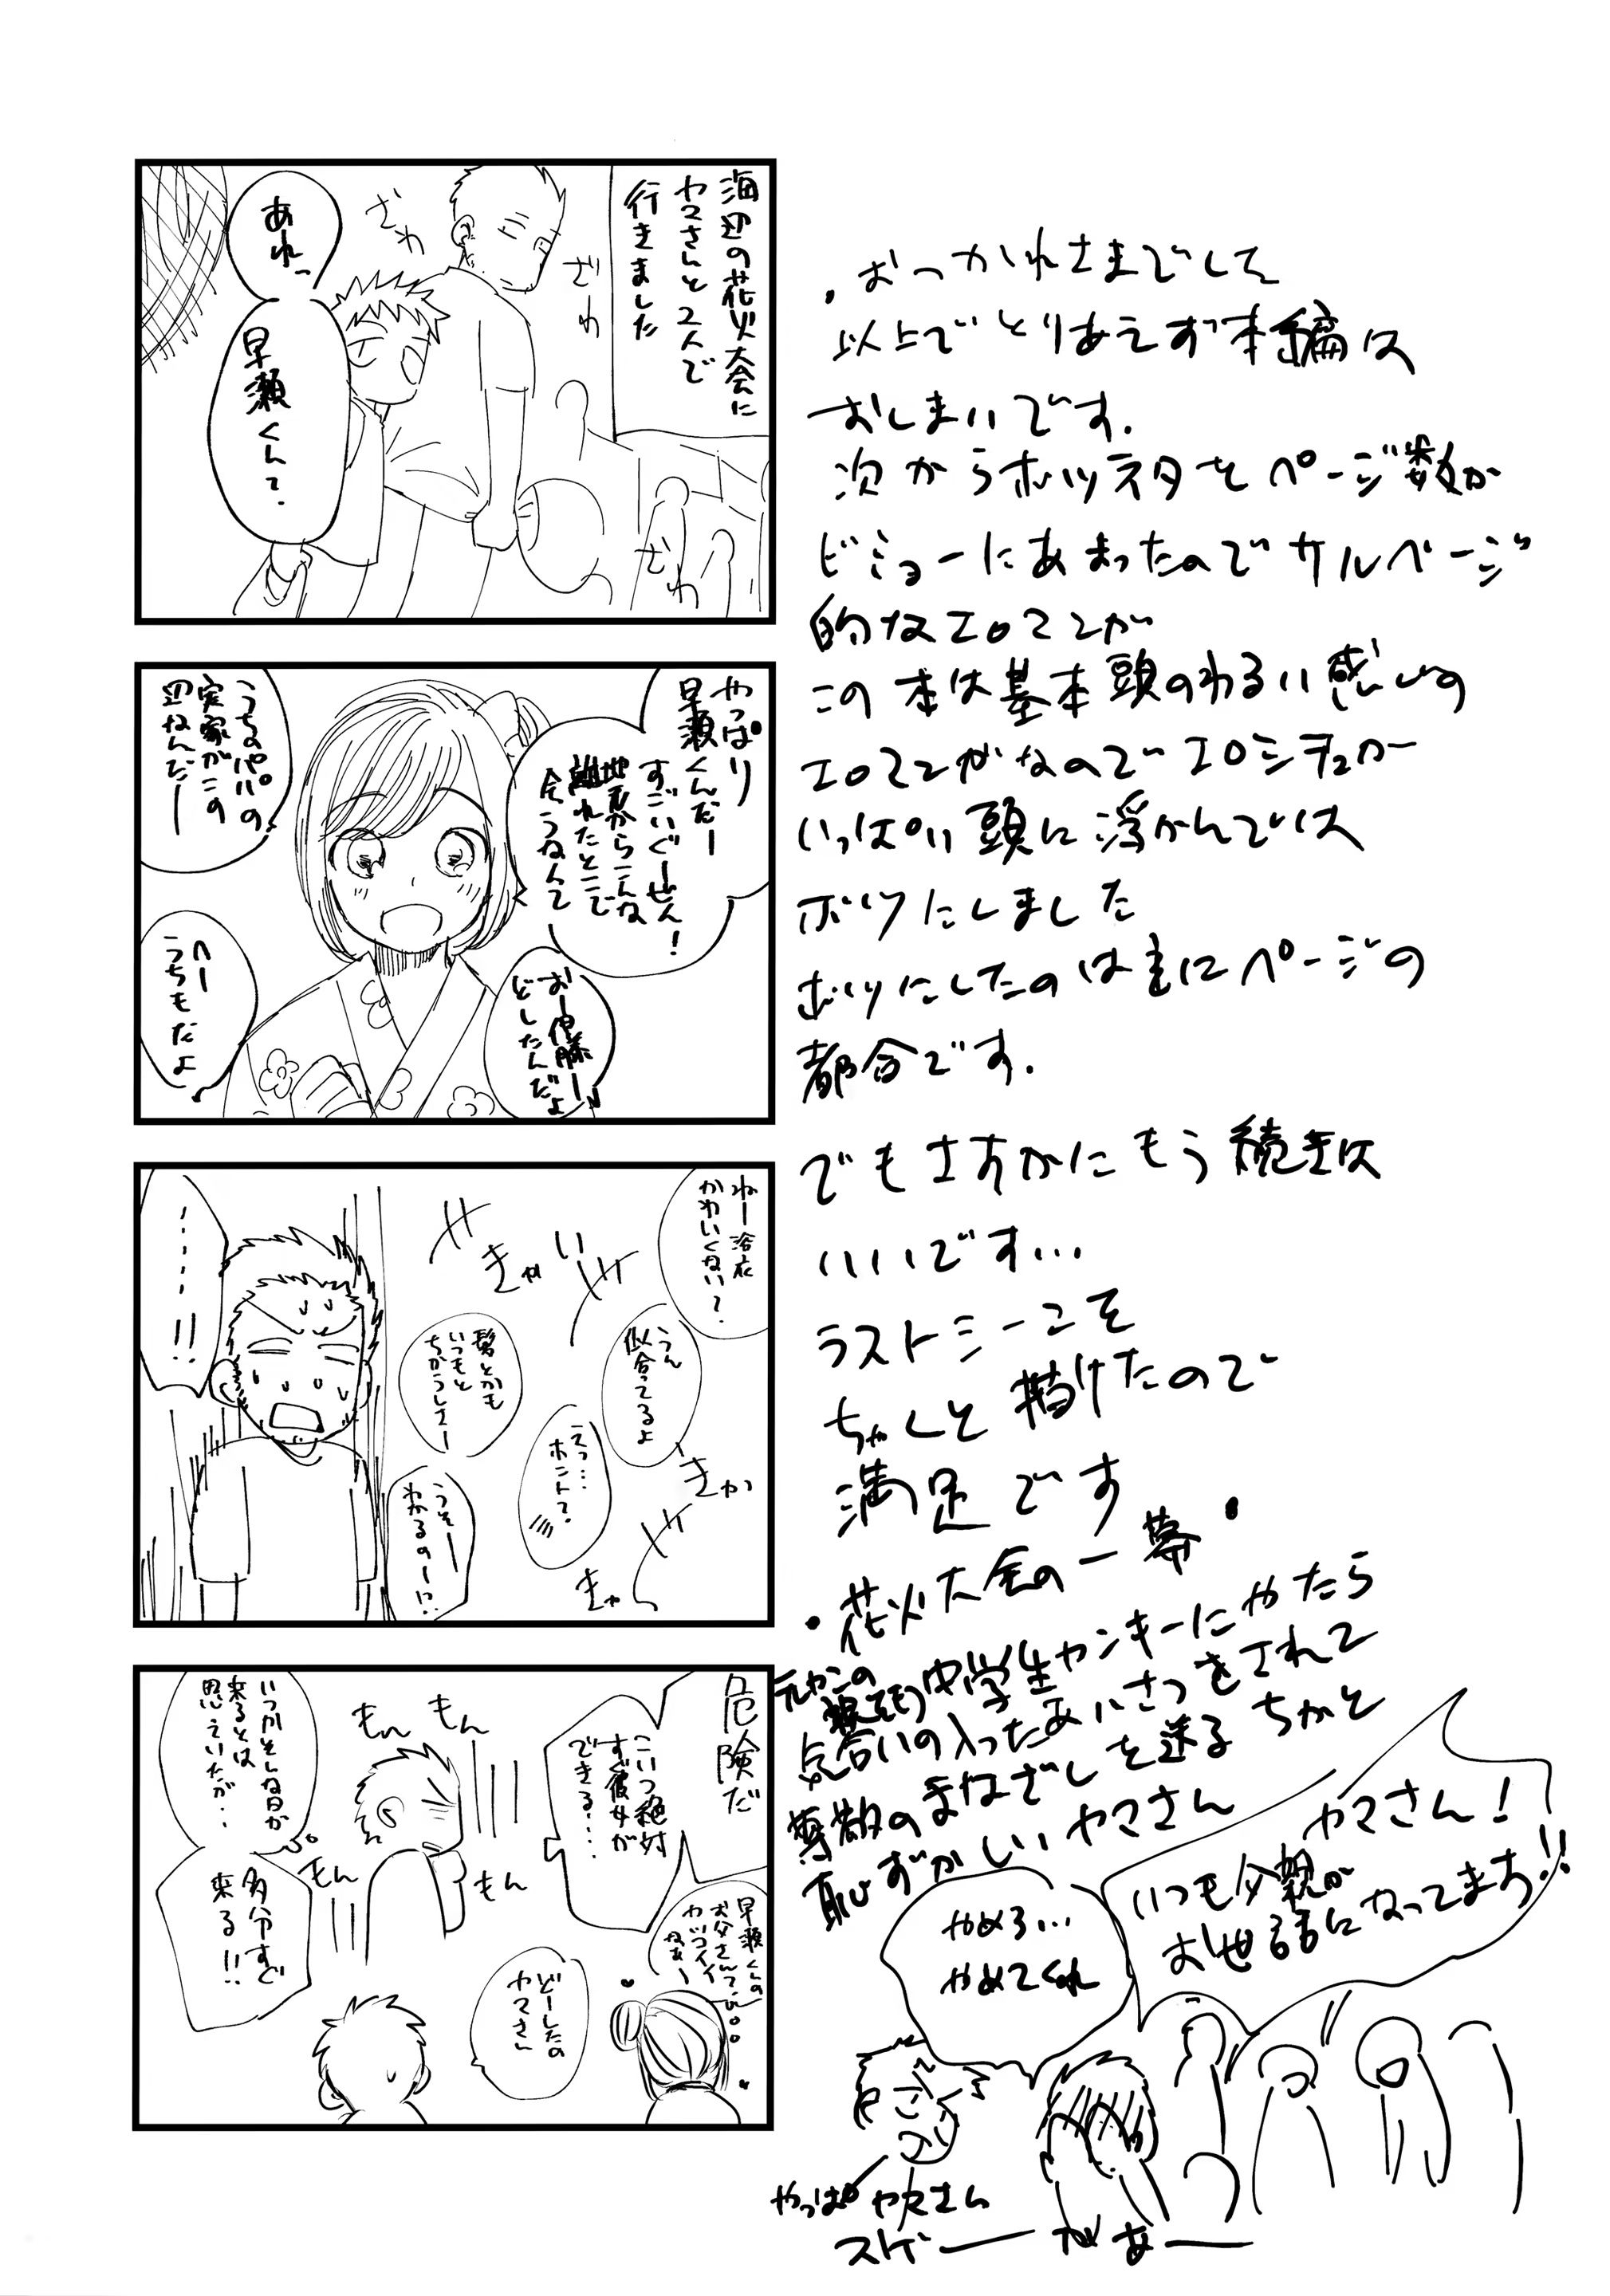 海辺の花火大会に
ヤマさんと2人で
行きました
ざわ
ざわ
ざわ
あれっ
早瀬くんて.
やっぱり
早瀬くんだー
すごいぐーぜん!
地元からこんな
離れたとこで
会うなんて
おー伊藤ー
どしたんだよ
うちのパパの
実家がこの
辺なんだー
へー
うちもだよ
ねー浴衣
かわいくない?
うん
似合ってるよ
えっ…
ホント?
髪とかも
いつもと
ちがうしさー
うそー
わかるのー!?
きゃい
きゃ
きゃ
……!!
危険だ
こいつ絶対
すぐ彼女が
できる…
もん
もん
もん
もん
いつかそんな日が
来るとは
思えていたが…
多分すぐ
来る!!
早瀬くんの
お父さんて
カッコイイ
なぁー
どーしたの
ヤマさん
・おつかれさまでした
以上でとりあえず本編は
おしまいです.
次からボツネタをページ数が
ビミョーにあまったのでサルベージ
的なエロマンガ
この本は基本頭のわるい感じの
エロマンガなのでエロシチュが
いっぱい頭に浮かんでは
ボツにしました
ボツにしたのは主にページの
都合です.
でもさすがにもう続きは
いいです…
ラストシーンこそ
ちゃんと描けたので
満足です
・花火大会の一幕・
中学生ヤンキーにやたら
気合いの入ったあいさつをされて
尊敬のまなざしを送る ちかと
恥ずかしいヤマさん
ヤマさん!
いつも父親が
お世話になってまち!!
やめろ…
やめてくれ
やっぱヤマさん
スゲーがあー